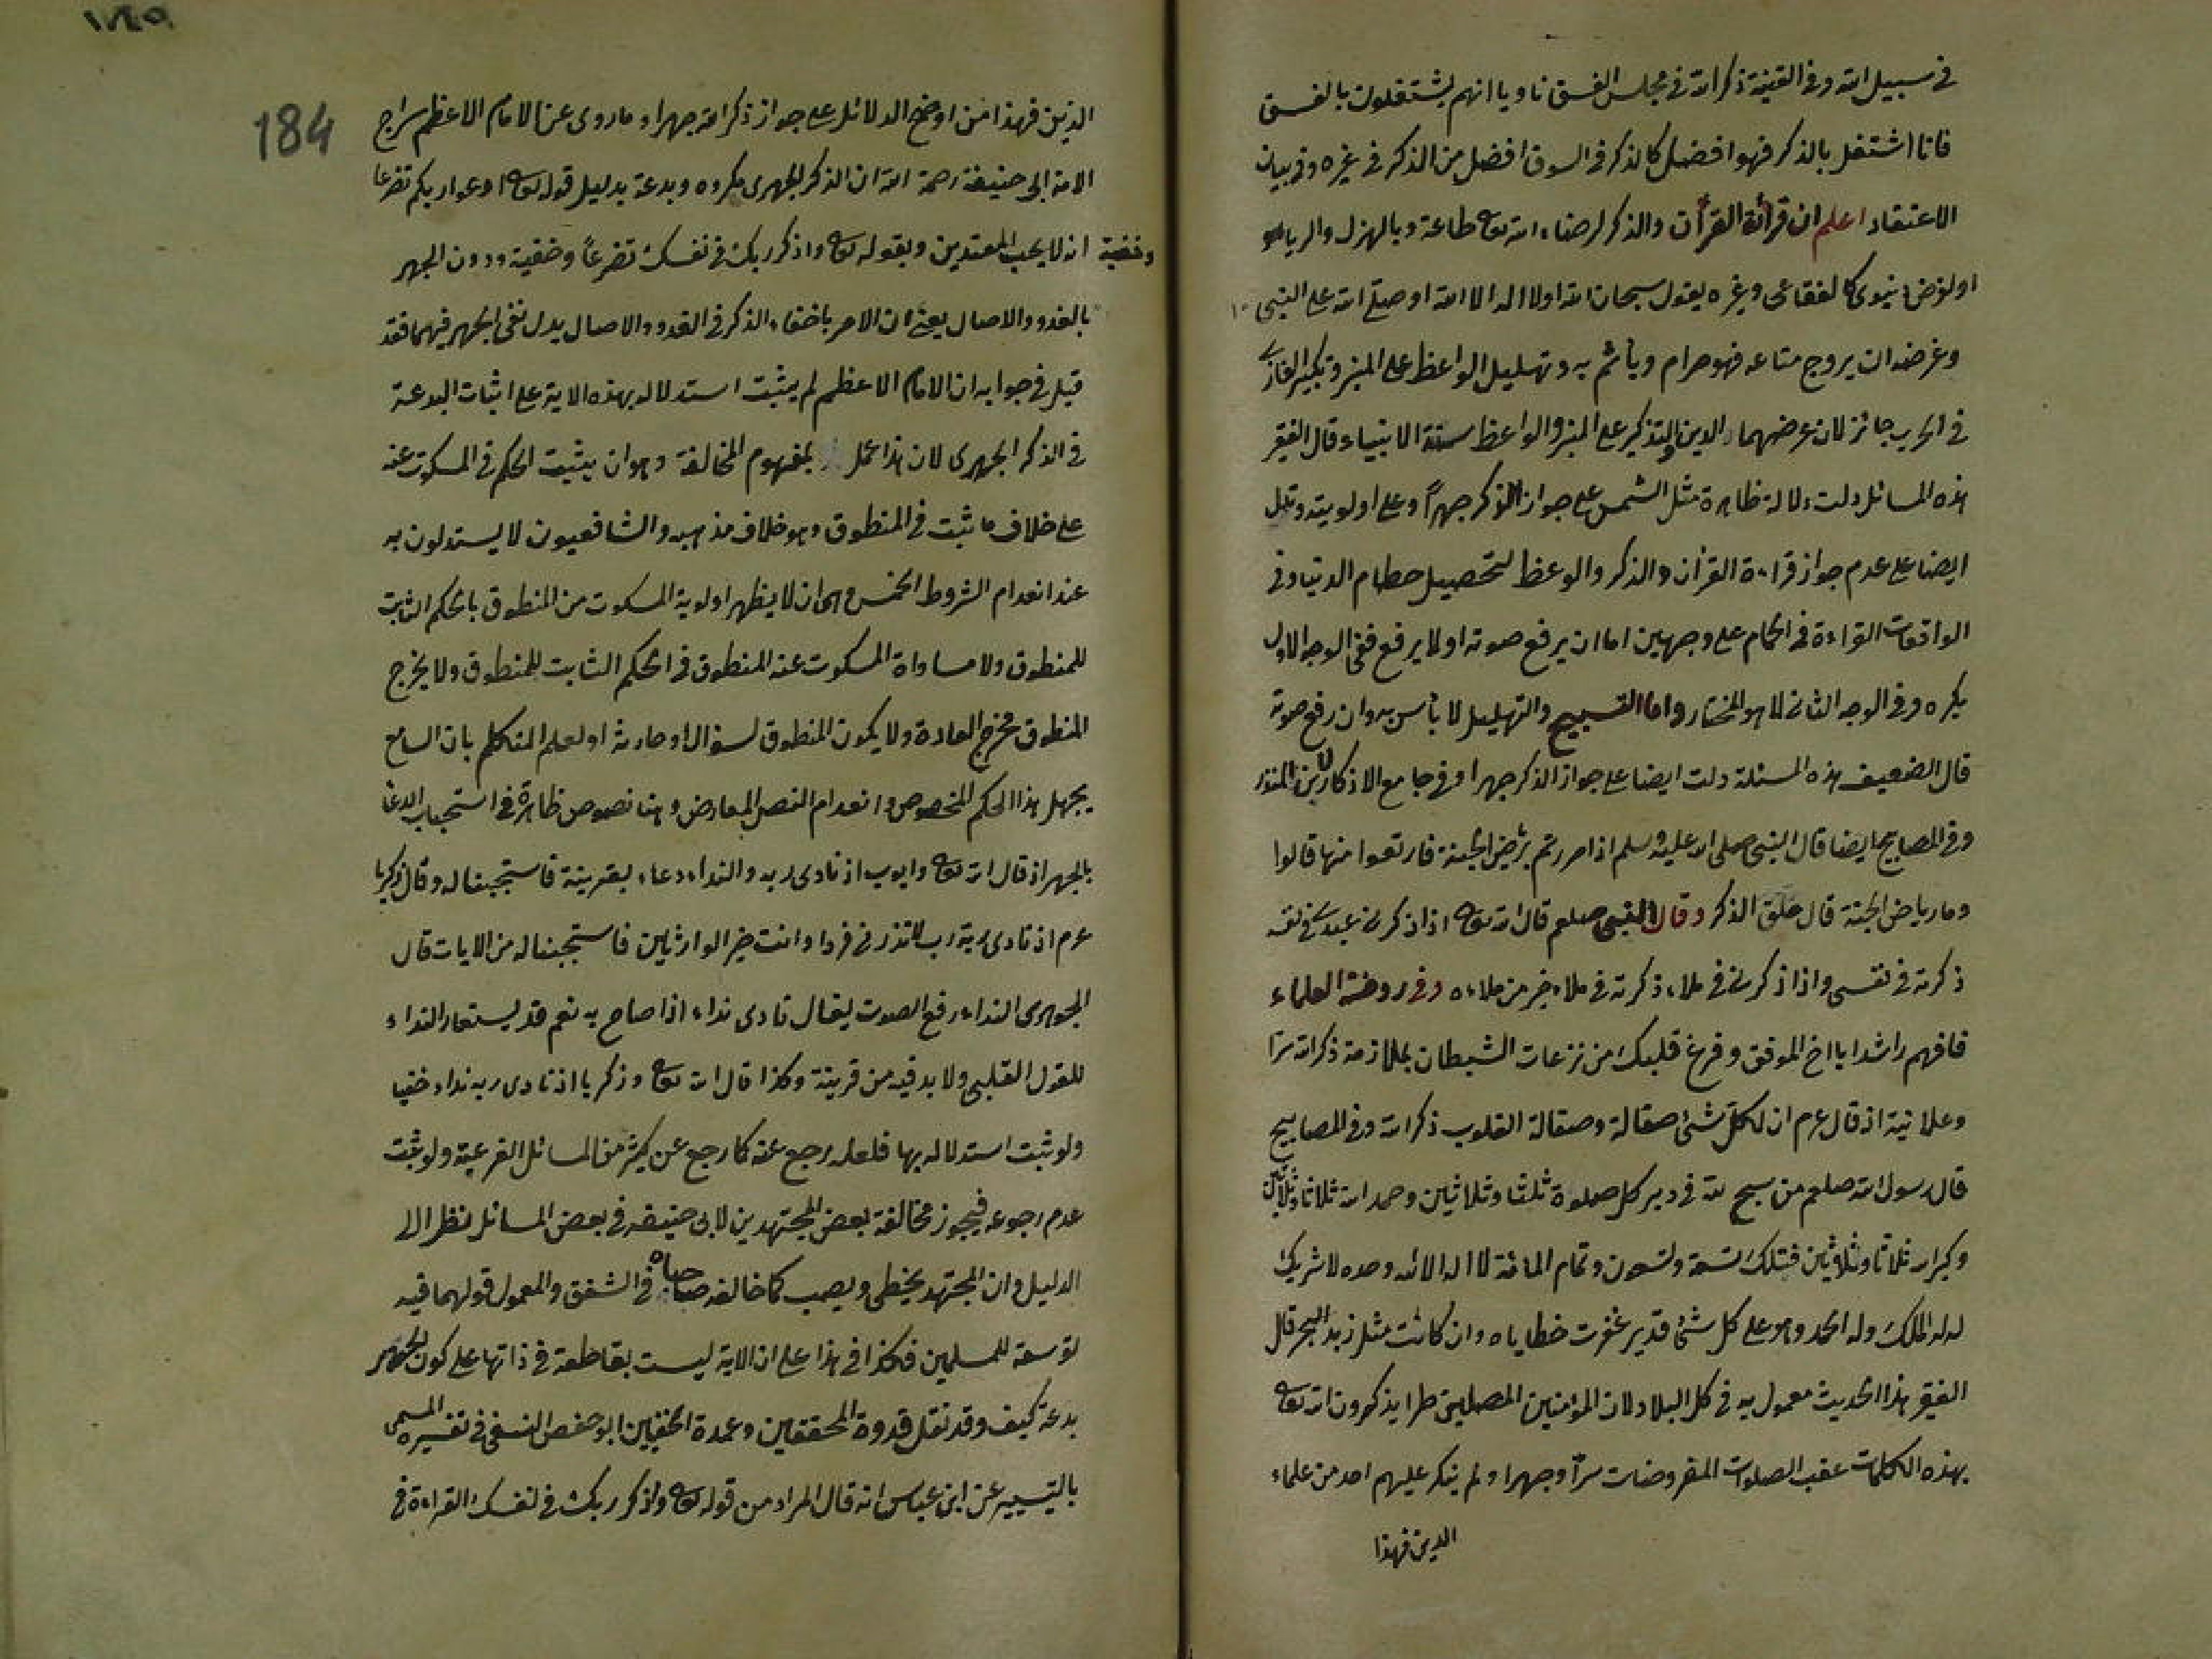 في سبيل الله وفي القنية ذكر الله في مجلس الفسق ناويا انهم يشتغلون بالفسق
فانا اشتغل بالذكر فهو افضل كالذكر في السوق افضل من الذكر في غيره وفي بيان
الاعتقاد اعلم ان قرائة القرأن والذكر لرضاء الله تعالى طاعة وبالهزل والرياء
او لغرض دنيوى كالفقاعى وغيره يقول سبحان الله اولا اله الا الله او صلى الله على النبي
وغرضه ان يروج متاعه فهو حرام ويأثم به وتهليل الواعظ على المنبر وتكبير الغازى
في الحرب جائز لان غرضهما الدين والتذكير على المنبر والواعظ سنة الانبياء وقال الفقير
هذه المسائل دلت دلالة ظاهرة مثل الشمس على جواز الذكر جهراً وعلى اولويته وتدل
ايضا على عدم جواز قراءة القرأن والذكر والوعظ لتحصيل حطام الدنيا وفي
الواقعات القراءة في الحمام على وجهين اما ان يرفع صوته اولا يرفع ففي الوجه الاول
يكره وفي الوجه الثاني لا هو المختار واما التسبيح والتهليل لا بأس به وان رفع صوته
قال الضعيف هذه المسئلة دلت ايضا على جواز الذكر جهرا وفي جامع الاذكار لابن المنذر
وفي المصابيح ايضا قال النبي صلى الله عليه وسلم اذا مررتم برياض الجنة فارتعوا منها قالوا
وما رياض الجنة قال حلق الذكر وقال النبي صلعم قال الله تعالى اذا ذكرني عبدى في نفسه
ذكرته في نفسى واذا ذكرني في ملاء ذكرته في ملاء خير من ملاءه وفي روضة العلماء
فافهم راشدا يا اخ الموفق وفرغ قلبك من نزعات الشيطان بملازمة ذكر الله سرا
وعلانية اذ قال عرم ان لكل شئ صقالة وصقالة القلوب ذكر الله وفي المصابيح
قال رسول الله صلعم من سبح لله في دبر كل صلوة ثلثا وثلاثين وحمد الله ثلاثا وثلاثين
وكبر الله ثلاثا وثلاثين فتلك تسعة وتسعون وتمام المائة لا اله الا الله وحده لا شريك
له له الملك وله الحمد وهو على كل شئ قدير غفرت خطاياه وان كانت مثل زبد البحر قال
الفقير هذا الحديث معمول به في كل البلاد لان المؤمنين المصلين طرا يذكرون الله تعالى
بهذه الكلمات عقب الصلوات المفروضات سرآ وجهرا ولم ينكر عليهم احد من علماء
الدين فهذا
١٨٤٥
184
الدين فهذا من اوضح الدلائل على جواز ذكر الله جهرا وما روى عن الامام الاعظم سراج
الامة ابى حنيفة رحمة الله ان الذكر الجهرى مكروه وبدعة بدليل قوله تعالى ادعوا ربكم تضرعا
وخفية انه لا يحب المعتدين وبقوله تعالى واذكر ربك في نفسك تضرعاً وخفية ودون الجهر
بالغدو والاصال يعني ان الامر باخفاء الذكر في الغدو والاصال يدل نفى الجهر فيهما فقد
قيل في جوابه ان الامام الاعظم لم يثبت استدلاله بهذه الاية على اثبات البدعة
في الذكر الجهرى لان هذا عمل بمفهوم المخالفة وهو ان يثبت الحكم في المسكوت عنه
على خلاف ما ثبت في المنطوق وهو خلاف مذهبه والشافعيون لا يستدلون به
عند انعدام الشروط الخمس وهى ان لا يظهر اولوية المسكوت من المنطوق بالحكم الثابت
للمنطوق ولا مساواة المسكوت عنه المنطوق في الحكم الثابت للمنطوق ولا يخرج
المنطوق مخرج العادة ولا يكون المنطوق لسؤال او حادثة او لعلم المتكلم بان السامع
يجهل هذا الحكم المخصوص وانعدام النص المعارض وهنا نصوص ظاهرة في استحباب الدعا
بالجهر اذ قال الله تعالى وايوب اذ نادى ربه والنداء دعاء بقرينة فاستجبنا له وقال زكريا
عرم اذ نادى ربه رب لا تذرني فردا وانت خير الوارثين فاستجبنا له من الايات قال
الجوهرى النداء رفع الصوت يقال نادى نداء اذا صاح به نعم قد يستعار النداء
للقول القلبى ولا بد فيه من قرينة وكذا قال الله تعالى وزكريا اذ نادى ربه نداء خفيا
ولو ثبت استدلاله بها فلعله رجع عنه كما رجع عن كثير من المسائل الفرعية ولو ثبت
عدم رجوعه فيجوز مخالفة بعض المجتهدين لابى حنيفه في بعض المسائل نظرا الى
الدليل وان المجتهد يخطى ويصيب كما خالفه صاحباه في الشفق والمعمول قولهما فيه
توسعة للمسلمين فكذا في هذا على ان الاية ليست بقاطعة في ذاتها على كون الجهر
بدعة كيف وقد نقل قدوة المحققين وعمدة الحنفيين ابو حفص النسفى في تفسيره المسمى
بالتيسير عن ابن عباس انه قال المراد من قوله تعالى واذكر ربك في نفسك القراءة في